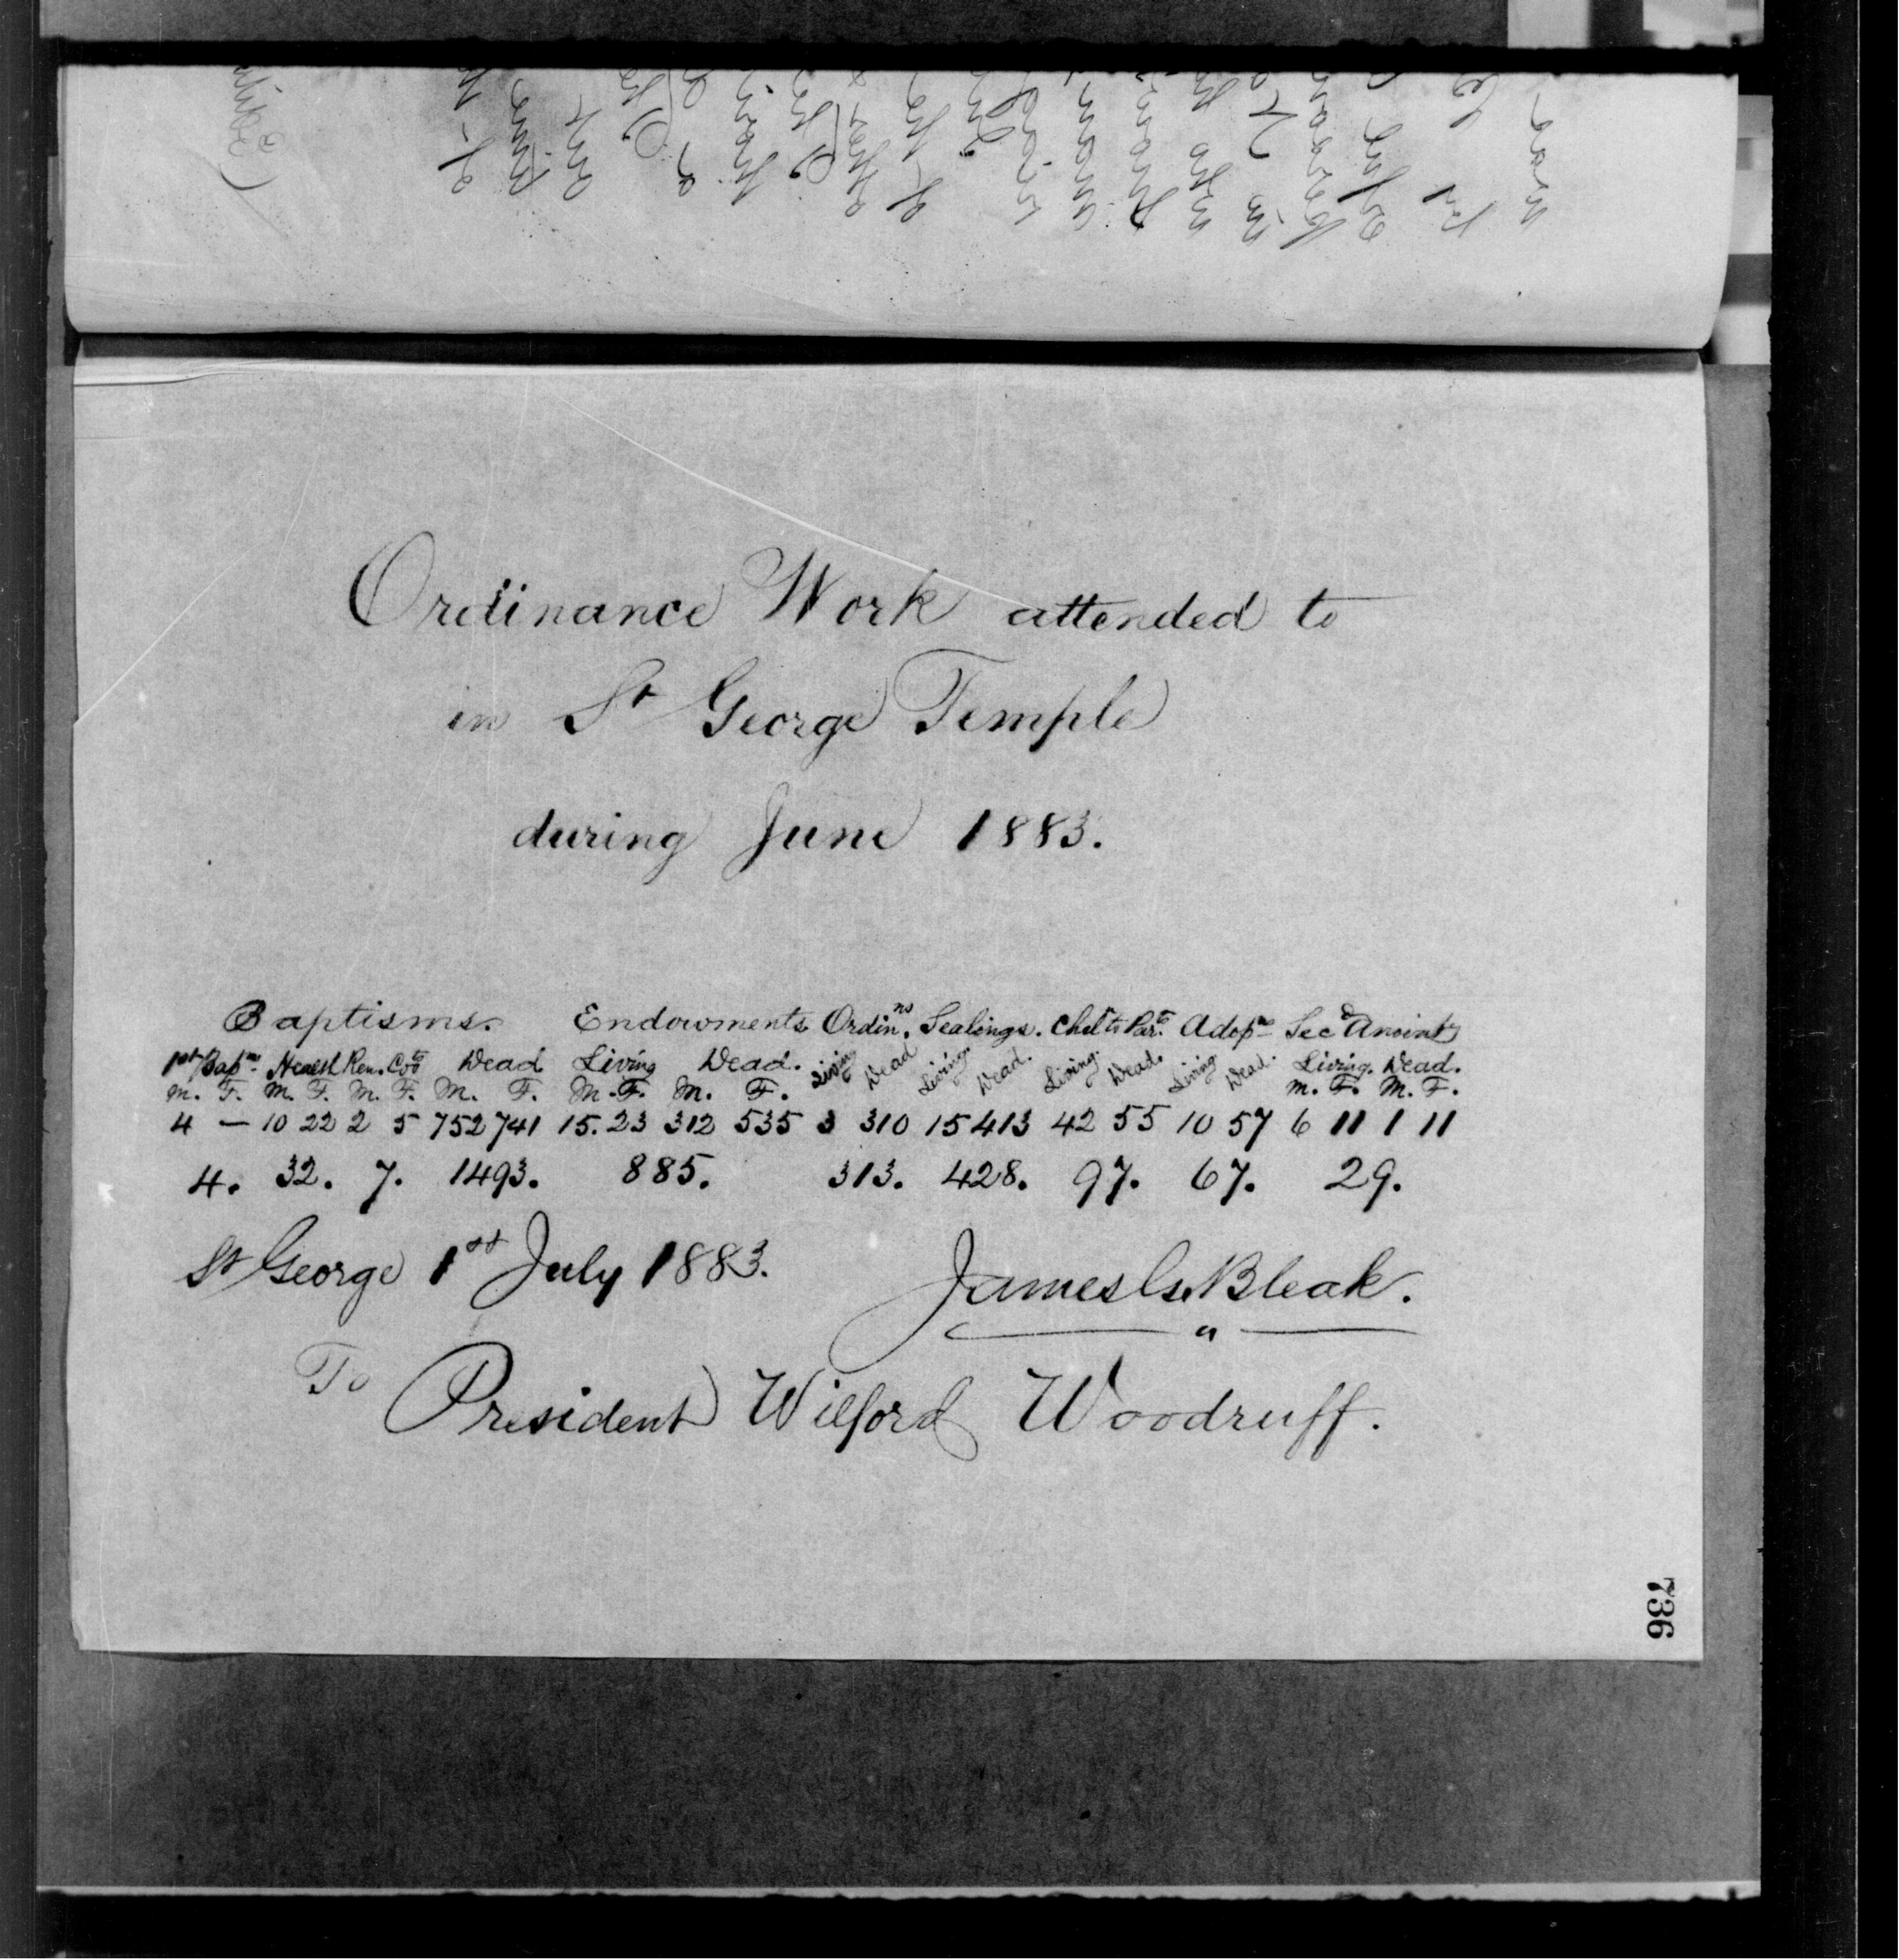 Ordinance Work attended to
in St George Temple
during June 1883.
Baptisms. Endowments Ordinns. Sealings. Chel to Parts Adopns Secd Anointgs
1st Bapms Health Ren. Cots Dead Living Dead. Living Dead Living. Dead. Living. Dead. Living. Dead. Living. Dead.
M. F. M. F. M. F. M. F. M. F. M. F. M. F. M. F.
4 — 10 22 2 5 752 741 15. 23 312 535 3 310 15 413 42 55 10 57 6 11 1 11
4. 32. 7. 1493. 885. 313. 428. 97. 67. 29.
St George 1st July 1883.
James G. Bleak.
To President Wilford Woodruff.
736